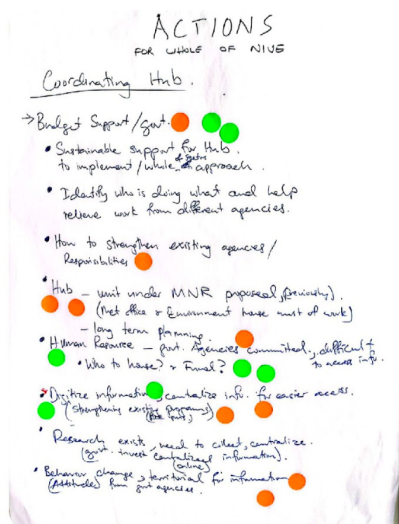 ACTIONS
FOR WHOLE OF NIUE
Coordinating Hub.
→ Budget Support/govt.
• Sustainable support for Hub.
to implement/whole of approach.
• Identify who is doing what and help
relieve work from different agencies.
• How to strengthen existing agencies/
Responsibilities
• Hub – unit under MNR proposed, (previously).
(Met office & Environment house most of work)
– long term planning.
• Human Resource – govt. Agencies committed, difficult to
to access info.
• Who to house? & Fund?
• Digitize information, centralize info. for easier access.
(strengthening existing programs)
• Research exists, need to collect, centralize.
(govt. invest centralized information).
(online)
• Behavior change, territorial for information
(Attitude) from govt agencies.